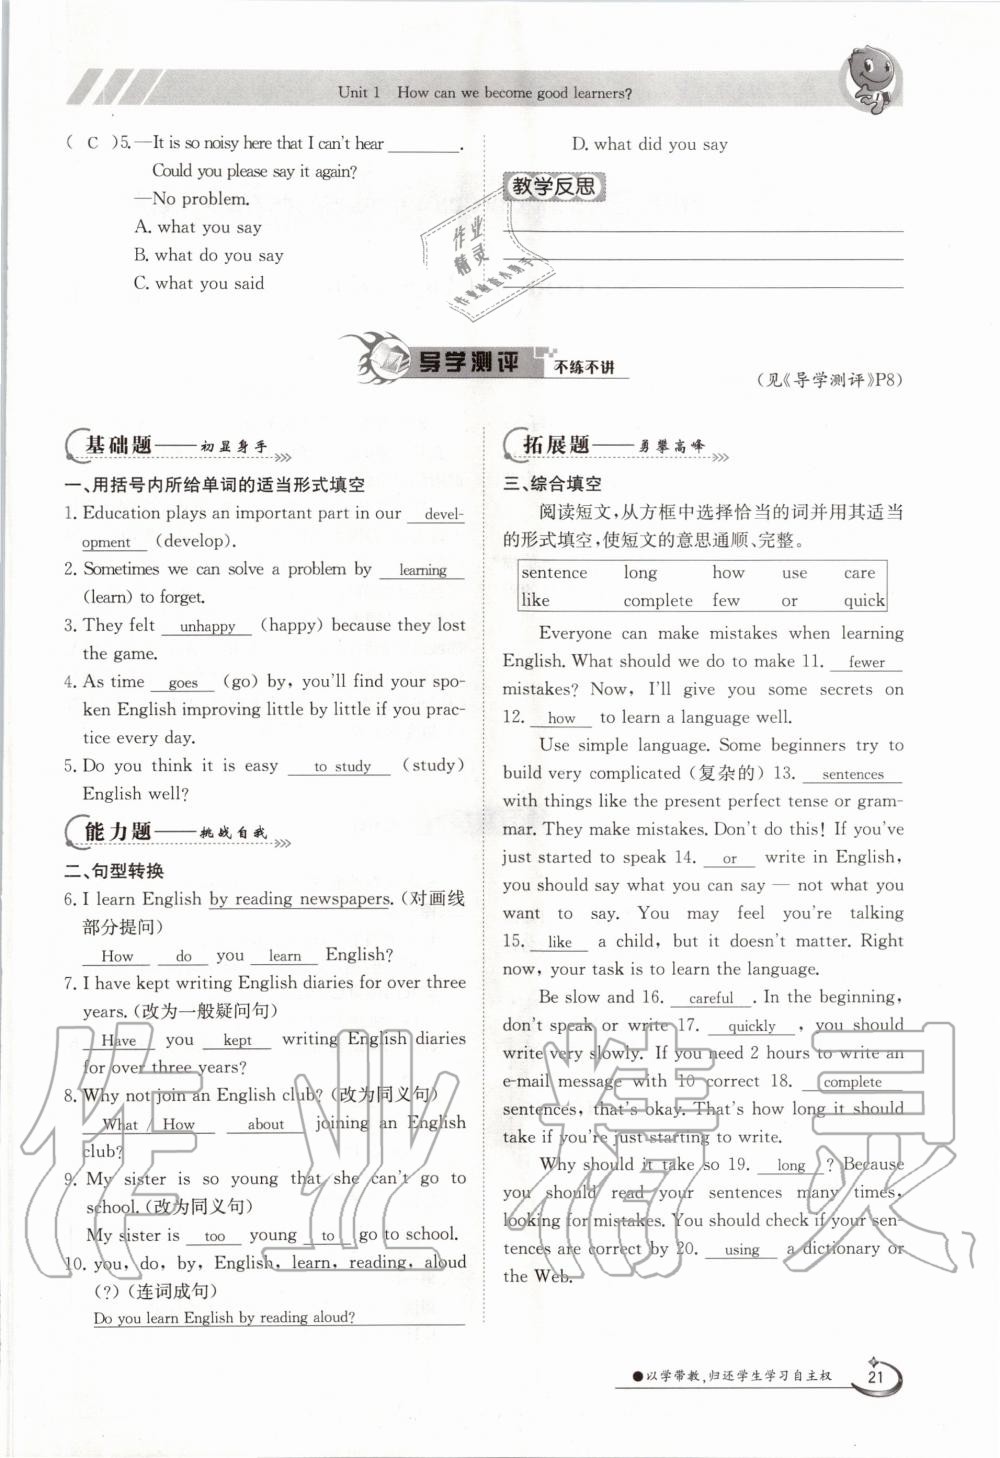 Unit 1 How can we become good learners?
( C )5. —It is so noisy here that I can't hear ________.
Could you please say it again?
—No problem.
A. what you say
B. what do you say
C. what you said
D. what did you say
教学反思
作业
精灵
导学测评 不练不讲
(见《导学测评》P8)
基础题——初显身手
一、用括号内所给单词的适当形式填空
1. Education plays an important part in our devel-
opment (develop).
2. Sometimes we can solve a problem by learning
(learn) to forget.
3. They felt unhappy (happy) because they lost
the game.
4. As time goes (go) by, you'll find your spo-
ken English improving little by little if you prac-
tice every day.
5. Do you think it is easy to study (study)
English well?
能力题——挑战自我
二、句型转换
6. I learn English by reading newspapers. (对画线
部分提问)
How do you learn English?
7. I have kept writing English diaries for over three
years. (改为一般疑问句)
Have you kept writing English diaries
for over three years?
8. Why not join an English club? (改为同义句)
What / How about joining an English
club?
9. My sister is so young that she can't go to
school. (改为同义句)
My sister is too young to go to school.
10. you, do, by, English, learn, reading, aloud
(?) (连词成句)
Do you learn English by reading aloud?
拓展题——勇攀高峰
三、综合填空
阅读短文,从方框中选择恰当的词并用其适当
的形式填空,使短文的意思通顺、完整。
sentence long how use care
like complete few or quick
Everyone can make mistakes when learning
English. What should we do to make 11. fewer
mistakes? Now, I'll give you some secrets on
12. how to learn a language well.
Use simple language. Some beginners try to
build very complicated (复杂的) 13. sentences
with things like the present perfect tense or gram-
mar. They make mistakes. Don't do this! If you've
just started to speak 14. or write in English,
you should say what you can say — not what you
want to say. You may feel you're talking
15. like a child, but it doesn't matter. Right
now, your task is to learn the language.
Be slow and 16. careful. In the beginning,
don't speak or write 17. quickly, you should
write very slowly. If you need 2 hours to write an
e-mail message with 10 correct 18. complete
sentences, that's okay. That's how long it should
take if you're just starting to write.
Why should it take so 19. long? Because
you should read your sentences many times,
looking for mistakes. You should check if your sen-
tences are correct by 20. using a dictionary or
the Web.
作业精灵
●以学带教,归还学生学习自主权 21